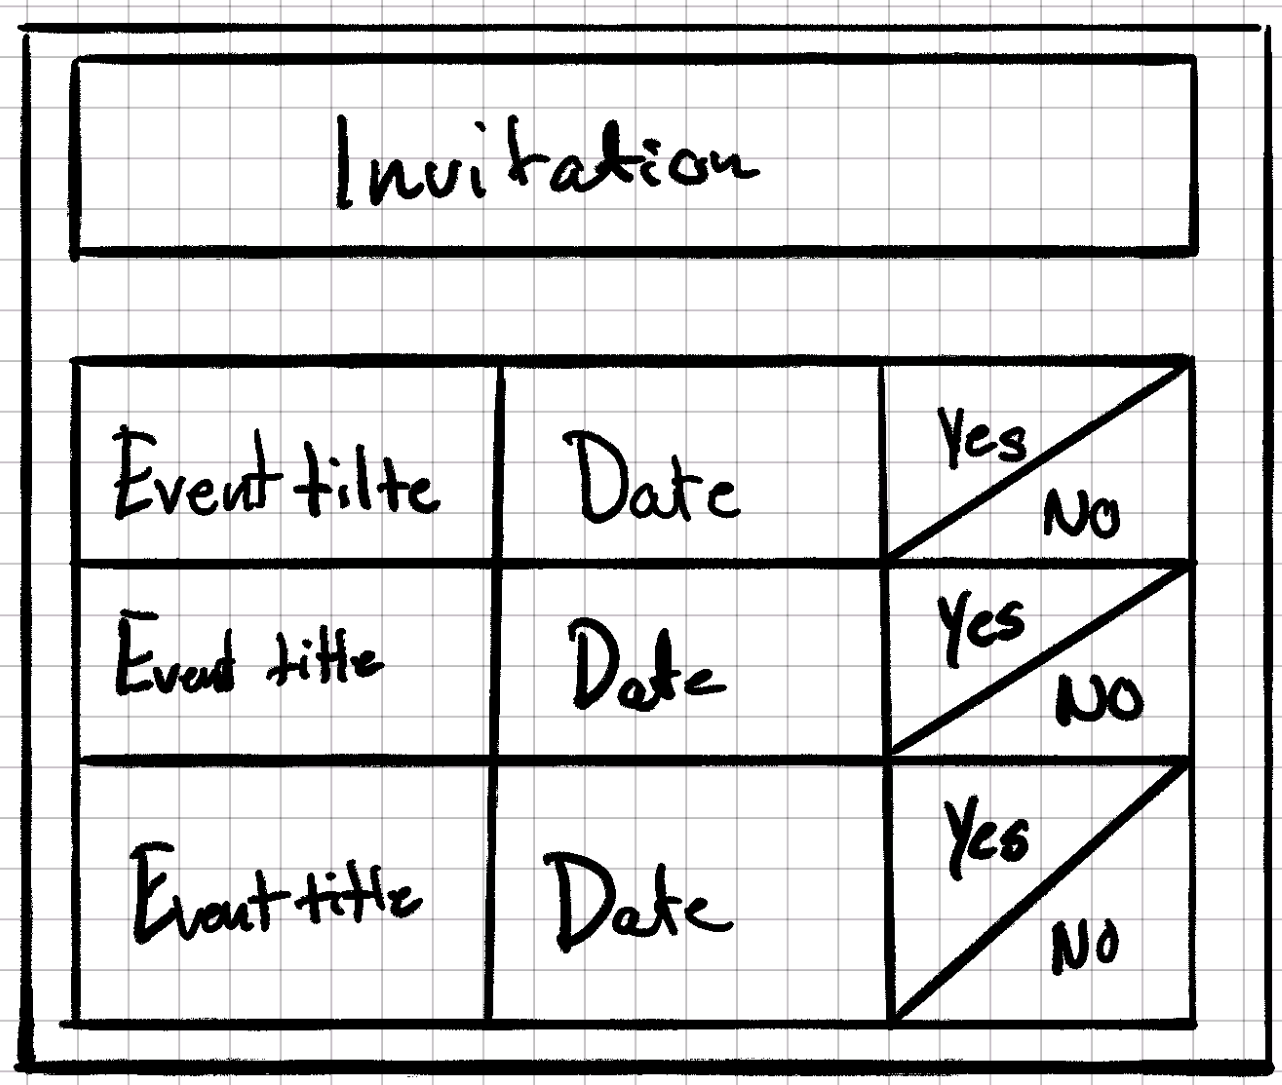 Invitation
Event tilte Date Yes
No
Event title Date Yes
No
Event title Date Yes
No